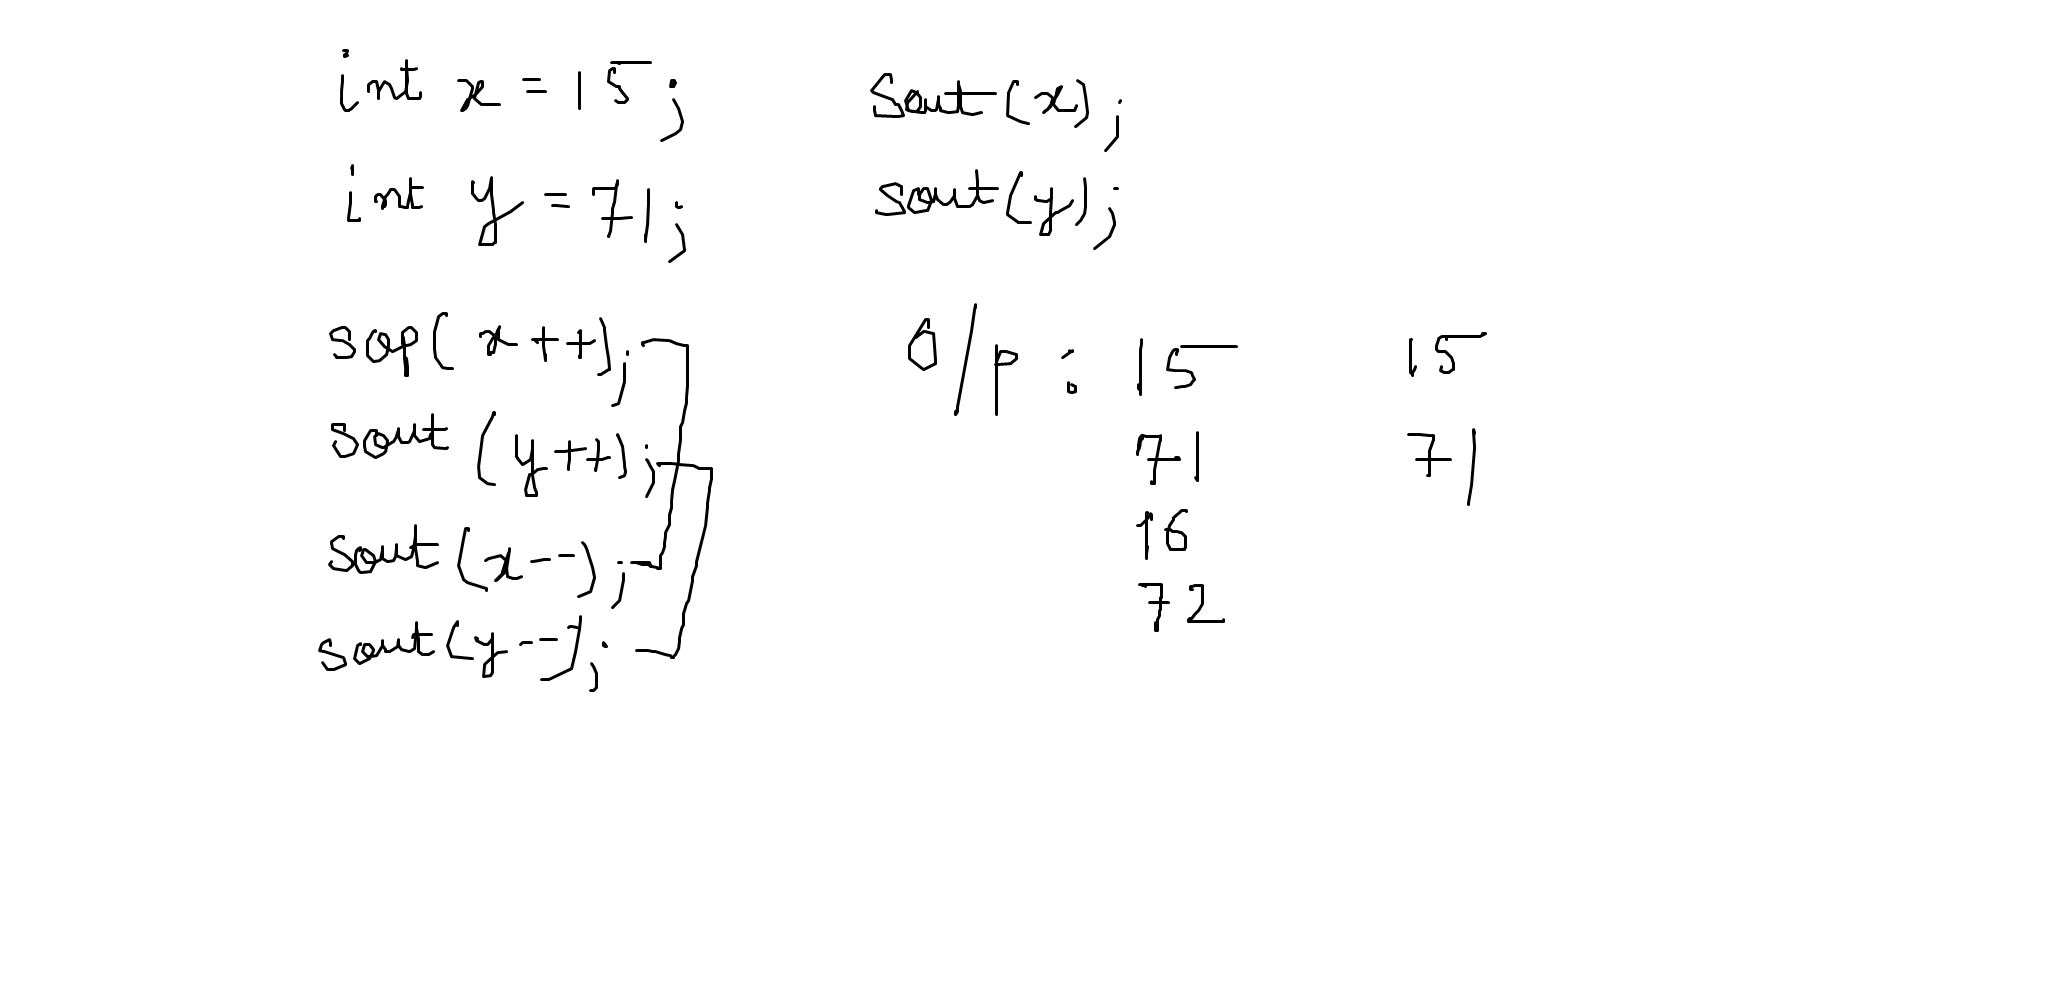 int x = 15;
int y = 71;
sop( x++);
sout (y++);
sout (x--);
sout(y--);
Sout(x);
sout(y);
O/p : 15 15
71 71
16
72